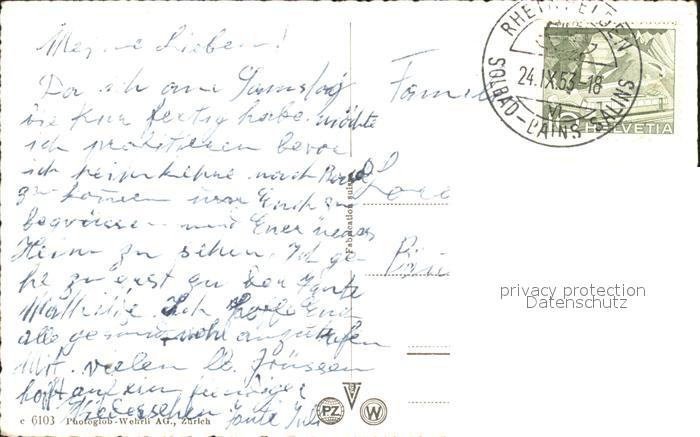 Meine Lieben!
Da ich am Samstag
die Kur fertig habe möchte
ich profitieren bevor
ich heimkehre nach
zu kommen um Euch zu
begrüssen und Euer neues
Heim zu sehen, Ich ge-
he zuerst zu der Tante
Mathilde. Ich hoffe Euch
alle gesund anzutreffen
Mit vielen lb. Grüssen
hofft auf ein freudiges
Wiedersehen Tante
Famil
RHEINFELDEN
24.IX.53-18
SOLBAD-BAINS SALINS
HELVETIA
Fabrication suisse
privacy protection
Datenschutz
c 6103 Photoglob-Wehrli AG., Zürich
PZ W